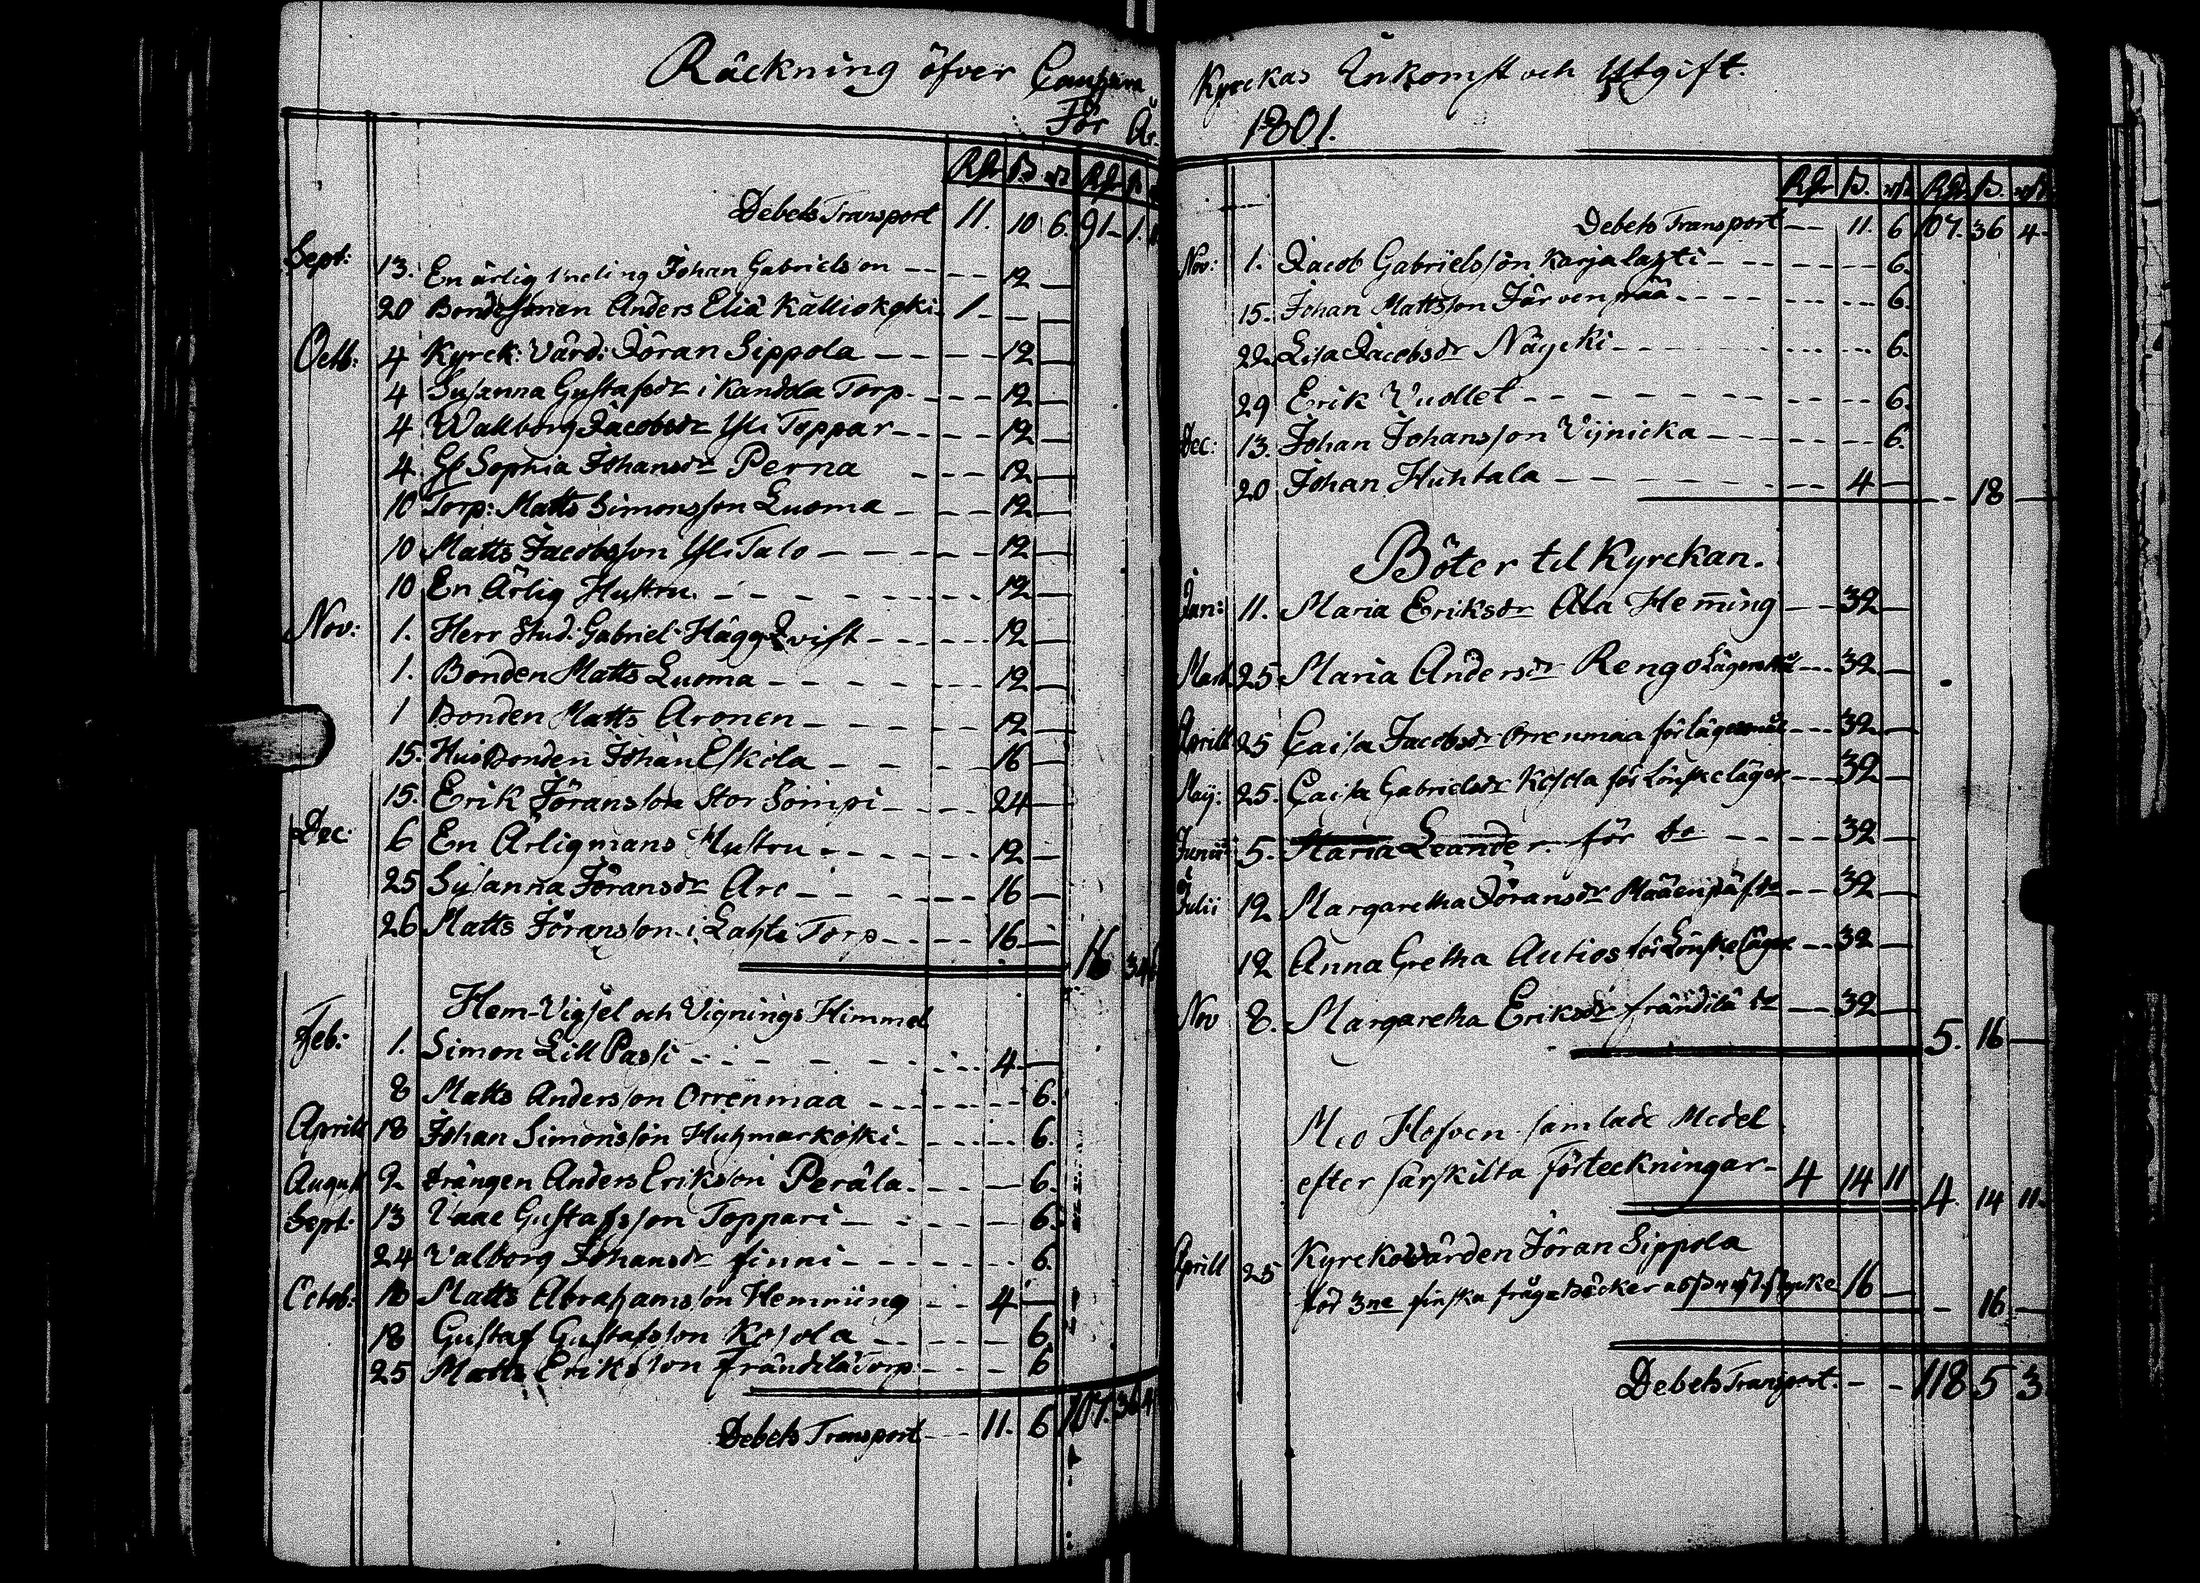 Räckning öfver Cauhava
För År
R:dr ß rst R:dr ß
Debets Transport 11. 10 6. 91 - 1.
Sept: 13. En ärlig Ynding Johan Gabrielsson - - - - 12 -
20 Bondesonen Anders Eliæ Kalliokoski 1 - - -
Octb: 4 Kyrck: Värd: Jöran Sippola - - - - 12 -
4 Susanna Gustafsdr i Kandola Torp - - - - 12 -
4 Wallborg Jacobsdr Yli Toppar - - - - 12 -
4 Sophia Johansdr Perna - - - 12 -
10 Torp: Matts Simonsson Luoma - - - 12 -
10 Matts Jacobsson Yli Talo - - - - 12 -
10 En Ärlig Hustru - - - - 12 -
Nov: 1. Herr Stud: Gabriel Häggqvist - - - - 12 -
1. Bonden Matts Luoma - - - - 12 -
1 Bonden Matts Aronen - - - - 12 -
15. Husbonden Johan Eskola - - - - 16 -
15. Erik Jöransson Stor Sómpi - - - - 24 -
Dec 6 En Ärligmans Hustru - - - - 12 -
25 Susanna Jöransdr Aro - - - - 16 -
26 Matts Jöransson i Lahti Torp - - - - 16 -
16 34
Hem-Vigsel och Vignings Himmel
Feb: 1. Simon Lill Passi - - - - 4 -
8 Matts Andersson Orrenmaa - - - - 6.
Aprill 18 Johan Simonsson Huhmarkoski - - - - 6.
August 2 Drängen Anders Eriksson Peräla - - - 6.
Sept: 13 Isaac Gustafsson Toppari - - - - 6.
24 Valborg Johansdr finni - - - - 6.
Octob: 18 Matts Abrahamsson Hemming - - 4 -
18 Gustaf Gustafsson Kosola - - - - 6
25 Matts Eriksson Frändilä Torp - - - 6
Debets Transport - - 11. 6 107. 36 4
Kyrckas Inkomst och Utgift.
1801.
R:dr ß. rst R:dr ß. rst
Debets Transport - - 11. 6 107. 36 4 -
Nov: 1. Jacob Gabrielsson Karjalahti - - - - 6.
15. Johan Mattsson Järvenpää - - - - 6.
22. Lisa Jacobsdr Näycki - - - - 6.
29 Erik Vuollet - - - - 6.
Dec: 13. Johan Johansson Vijnicka - - - - 6.
20 Johan Huhtala - - - - 4 -
- 18 -
Böter til Kyrckan.
Jan: 11. Maria Eriksdr Ala Hem̄ing - - 32 -
Mart 25. Maria Andersdr Rengo Lägersmål - - 32 -
Aprill 25 Caisa Jacobsdr Orrenmaa för lägersmål - - 32 -
Maij: 25. Caisa Gabrielsdr Kosola för Lönskeläger - - 32 -
Junii 5. Maria Leander för do - - - - 32 -
Julii 12 Margaretha Jöransdr Määenpä f do - - 32 -
12 Anna Gretha Autios för Lönskeläger - - 32 -
Nov 8. Margaretha Eriksdr frändilä do - - 32 -
5. 16 -
Med Hofven samlade Medel
efter särskilta Förteckningar - 4 14 11 4. 14 11.
Aprill 25 Kyrckovärden Jöran Sippola
för 3ne finska frågeböcker a 5ß 4rst Stycke 16 - - 16 -
Debets Transport. - - 118 5 3.